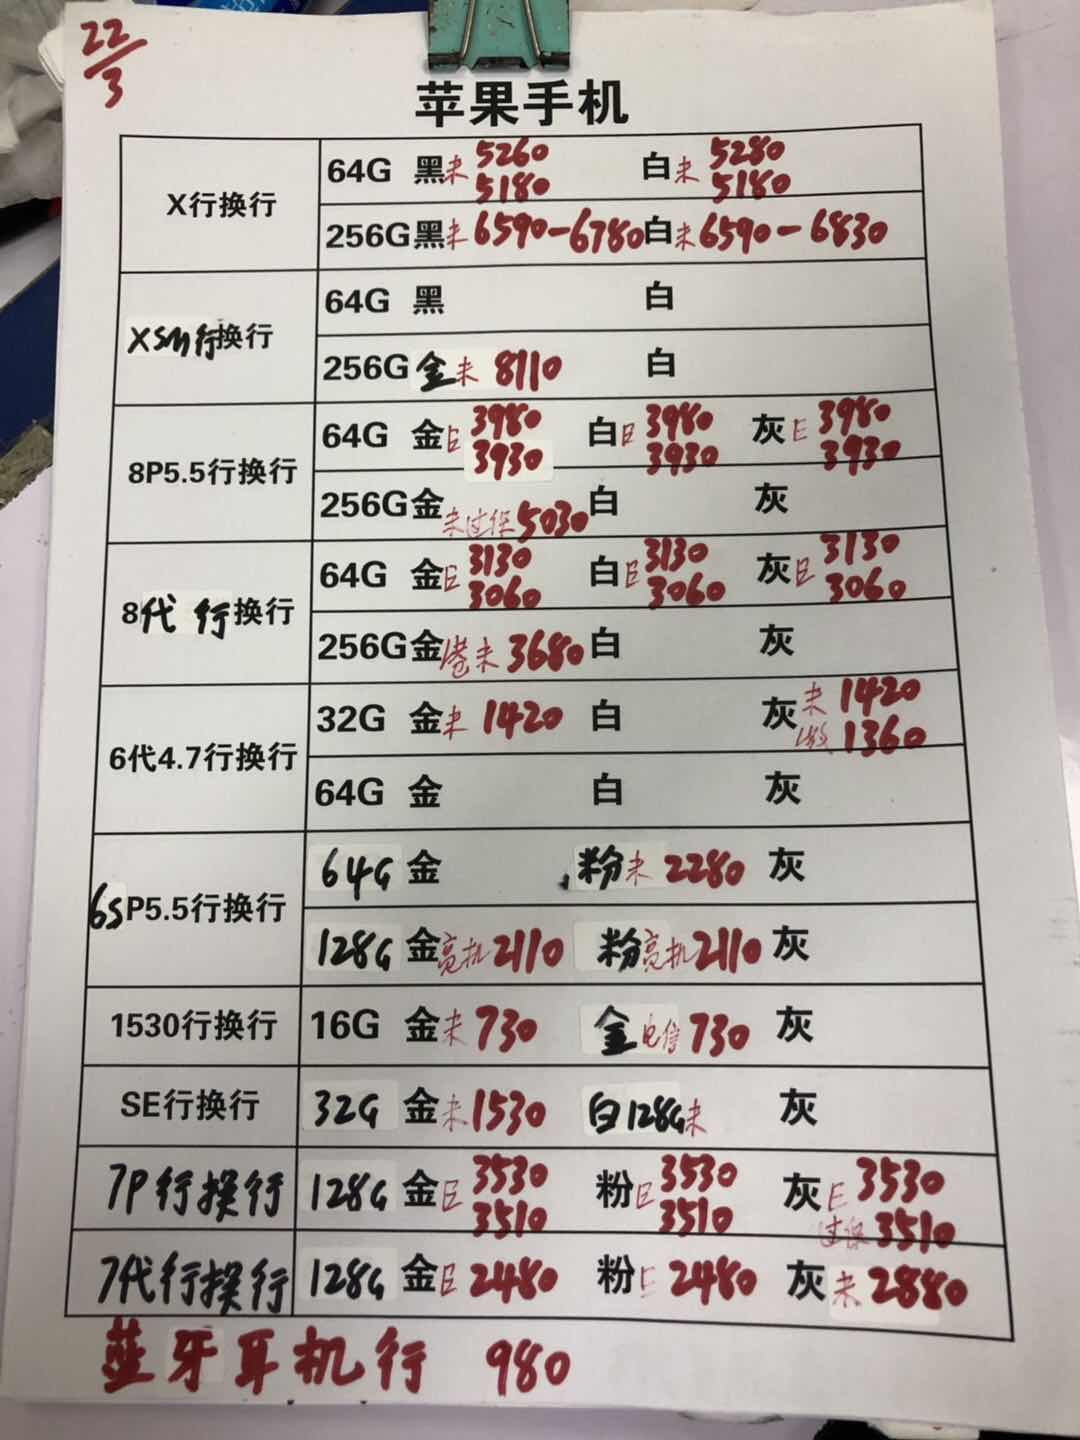 22/3
苹果手机
X行换行
64G 黑未 5260 5180 白未 5280 5180
256G黑未 6590-6780 白未 6590-6830
XSM行换行
64G 黑 白
256G 金未 8110 白
8P5.5行换行
64G 金 3980 3930 白 3980 3930 灰 3980 3930
256G金 未过保 5030 白 灰
8代 行换行
64G 金 3130 3060 白 3130 3060 灰 3130 3060
256G金 港未 3680 白 灰
6代4.7行换行
32G 金未 1420 白 灰未 1420 激 1360
64G 金 白 灰
6SP5.5行换行
64G 金 粉未 2280 灰
128G 金亮机2110 粉亮机2110 灰
1530行换行
16G 金未 730 金电信 730 灰
SE行换行
32G 金未 1530 白128G未 灰
7P行换行
128G 金 3530 3510 粉 3530 3510 灰 3530 过保 3510
7代行换行
128G 金 2480 粉 2480 灰未 2880
蓝牙耳机行 980